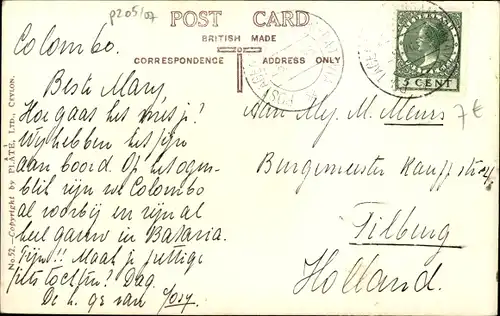 p205/07
POST CARD
BRITISH MADE
CORRESPONDENCE
ADDRESS ONLY
NEDERLAND
5 CENT
7€
No. 52.—Copyright by PLÂTÉ, LTD., CEYLON.
Colombo.
Beste Mary,
Hoe gaat het met je?
Wij hebben het fijn
aan boord. Op het ogen-
blik zijn we Colombo
al voorbij en zijn al
heel gauw in Batavia.
Fijn!! Maak je prettige
fietstochten? Dag.
De h. gr van Josy.
Aan Mej. M. Meurs
Burgemeister Kauff str.
Tilburg
Holland.